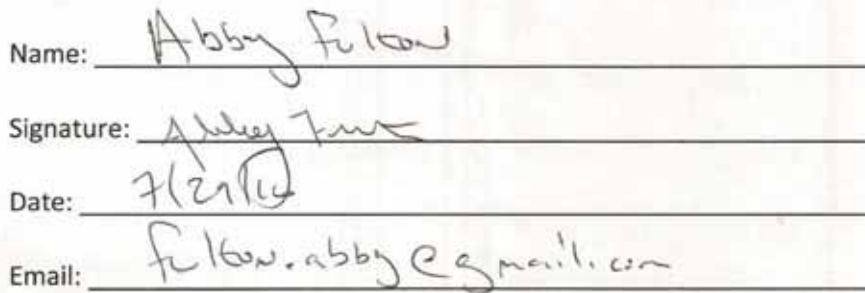 Name: Abby Fulton
Signature: Abby
Date:
Email: fulton.abby@gmail.com